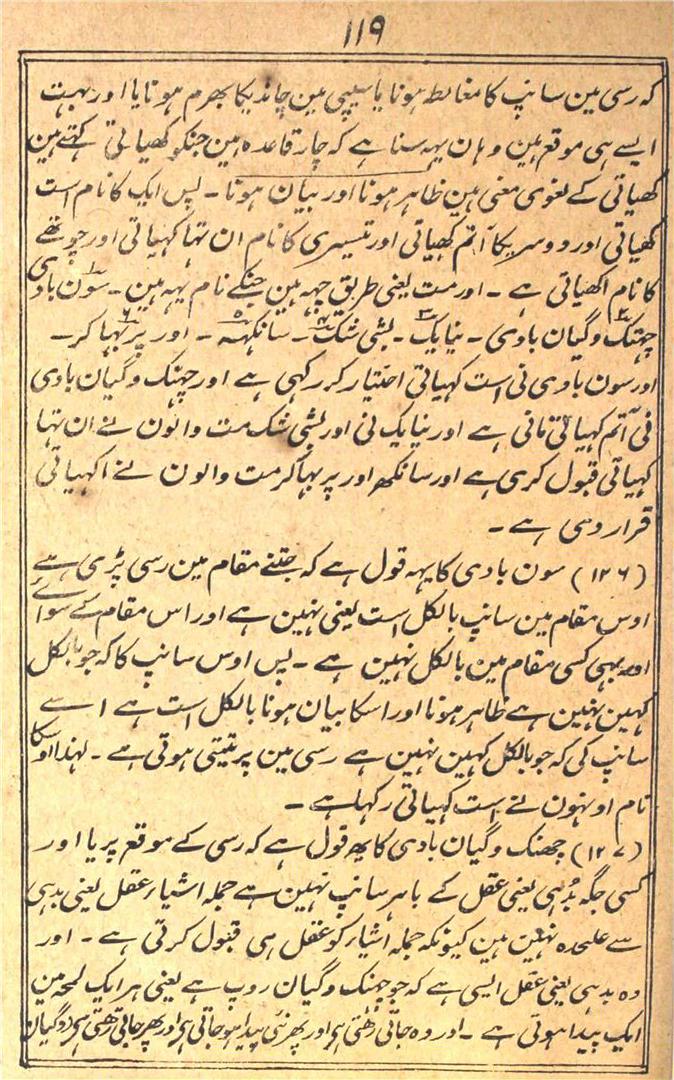 ۱۱۹
کہ رسی مین سانپ کا مغالطہ ہونا یا سیپی مین چاندیکا بھرم ہونا یا اور بہت
ایسے ہی موقع ہین وہان یہہ سنا ہے کہ چار قاعدہ ہین جنکو کھیاتی کہتے ہین
کھیاتی کے لغوی معنی ہین ظاہر ہونا اور بیان ہونا ۔ پس ایک کا نام است
کھیاتی اور دوسریکا آتم کھیاتی اور تیسری کا نام ان تہا کہیاتی اور چوتھے
کا نام اکھیاتی ہے ۔ اور مت یعنی طریق چہہ ہین جنکے نام یہہ ہین ۔ سون بادی
چہنک وگیان بادی ۔ نیایک ۔ بشی شک ۔ سانکہہ ۔ اور پربہاکر ۔
اور سون بادی نی است کہیاتی اختیار کر رکہی ہے اور چہنک وگیان بادی
نی آتم کہیاتی مانی ہے اور نیایک نی اور بشی شک مت والون نے ان تہا
کہیاتی قبول کری ہے اور سانکھ اور پربہاکر مت والون نے اکہیاتی
قرار دی ہے ۔
(۱۲۶) سون بادی کا یہہ قول ہے کہ جتنے مقام مین رسی پڑی ہے
اوس مقام مین سانپ بالکل است یعنی نہین ہے اور اس مقام کے سوائے
اور بہی کسی مقام مین بالکل نہین ہے ۔ پس اوس سانپ کا کہ جو بالکل
کہین نہین ہے ظاہر ہونا اور اسکا بیان ہونا بالکل است ہے اسے
سانپ کی کہ جو بالکل کہین نہین ہے رسی مین پرتیتی ہوتی ہے ۔ لہذا اوسکا
نام اونہون نے است کہیاتی رکہا ہے ۔
(۱۲۷) چھنک وگیان بادی کا یہ قول ہے کہ رسی کے موقع پر یا اور
کسی جگہ بُدہی یعنی عقل کے باہر سانپ نہین ہے جملہ اشیاء عقل یعنی بدہی
سے علیحدہ نہین ہین کیونکہ جملہ اشیاء کو عقل ہی قبول کرتی ہے ۔ اور
وہ بدہی یعنی عقل ایسی ہے کہ جو چہنک وگیان روپ ہے یعنی ہر ایک لمحہ مین
ایک پیدا ہوتی ہے ۔ اور وہ جاتی رہتی ہی اور پھر نئی پیدا ہو جاتی ہی اور پھر جاتی رہتی ہی